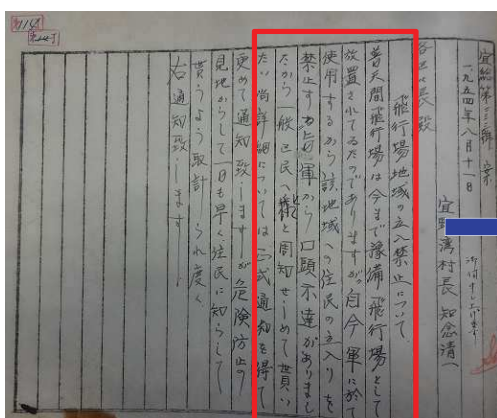 一九五四年八月十一日
各区長殿
宜野湾村長 知念清一
飛行場地域の立入禁止について
普天間飛行場は今まで豫備飛行場として
放置されてゐたのでありますが自今軍に於て
使用するから該地域への住民の立入りを
禁止する旨軍から口頭示達がありまし
たから一般区民へ衝と周知せしめて貰い
たい尚詳細については公式通知を得て
更めて通知致しますが危険防止の
見地からして一日も早く住民に知らして
貰うよう取計られ度く
右通知致します